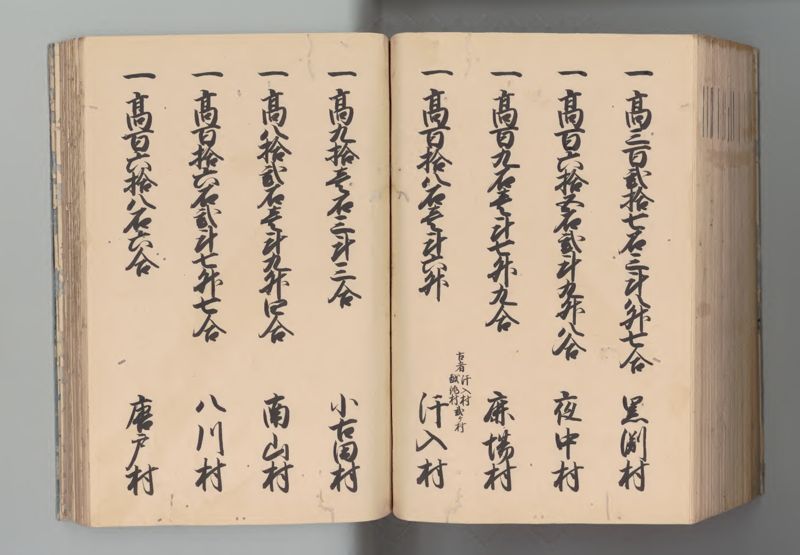 一 高三百弐拾七石三斗八升七合 黒渕村
一 高百六拾五石弐斗九升八合 夜中村
一 高百九石壱斗七升九合 麻場村
古者汗入村
弐ケ村
一 高百拾八石壱斗六升 汗入村
一 高九拾壱石三斗三合 小古田村
一 高八拾弐石壱斗九升四合 南山村
一 高百拾六石弐斗七升七合 八川村
一 高百六拾八石六合 唐戸村